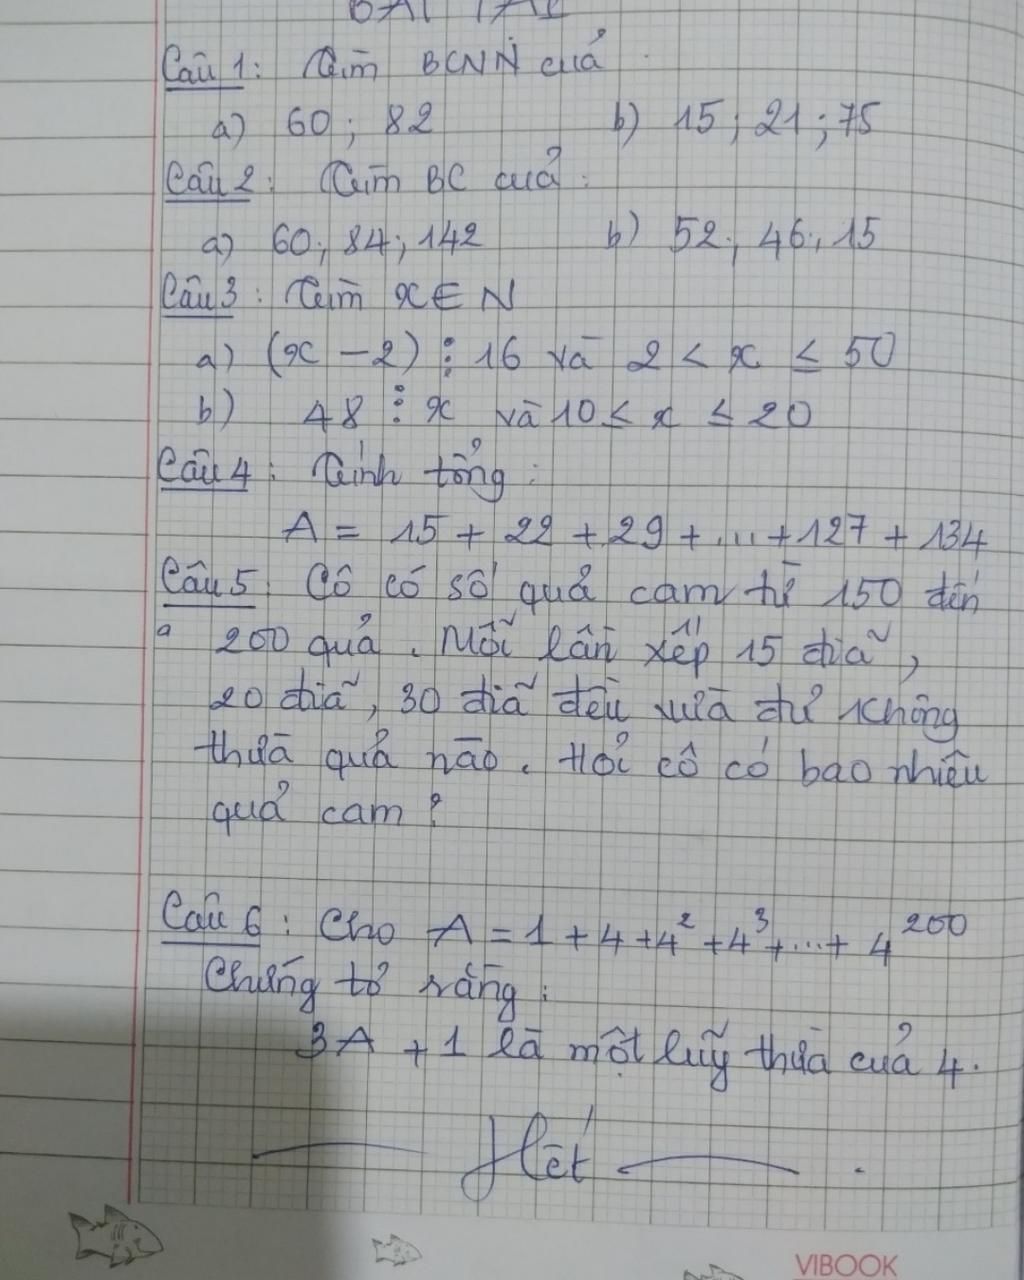 BÀI TẬP
Câu 1: Tìm BCNN của
a) 60; 82 b) 15; 21; 75
Câu 2: Tìm BC của:
a) 60; 84; 142 b) 52; 46; 15
Câu 3: Tìm x ∈ N
a) (x - 2) ⋮ 16 và 2 < x ≤ 50
b) 48 ⋮ x và 10 ≤ x ≤ 20
Câu 4: Tính tổng:
A = 15 + 22 + 29 + ... + 127 + 134
Câu 5: Cô có số quả cam từ 150 đến
200 quả. Mỗi lần xếp 15 đĩa,
20 đĩa, 30 đĩa đều vừa đủ không
thừa quả nào. Hỏi cô có bao nhiêu
quả cam?
Câu 6: Cho A = 1 + 4 + 4² + 4³ + ... + 4²⁰⁰
Chứng tỏ rằng:
3A + 1 là một luỹ thừa của 4.
Hết
VIBOOK